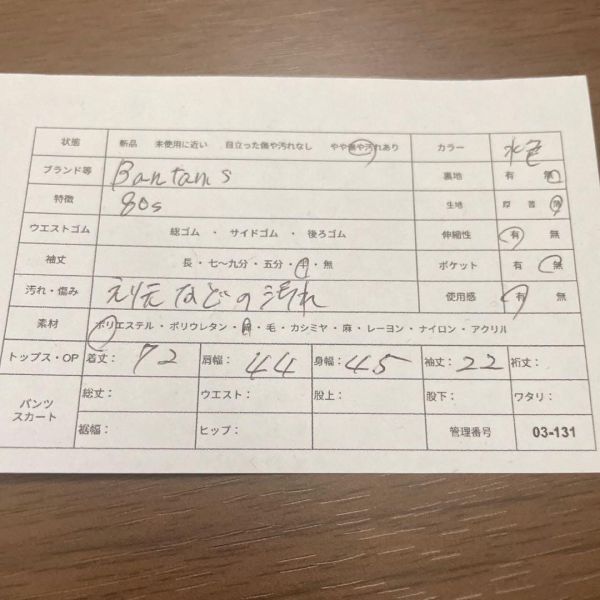 状態 新品 未使用に近い 目立った傷や汚れなし やや傷や汚れあり カラー 水色
ブランド等 Bantams 裏地 有 無
特徴 80s 生地 厚 普 薄
ウエストゴム 総ゴム ・ サイドゴム ・ 後ろゴム 伸縮性 有 無
袖丈 長・七〜九分・五分・半・無 ポケット 有 無
汚れ・傷み えり元などの汚れ 使用感 有 無
素材 ポリエステル・ポリウレタン・綿・毛・カシミヤ・麻・レーヨン・ナイロン・アクリル
トップス・OP 着丈：72 肩幅：44 身幅：45 袖丈：22 裄丈：
パンツ スカート 総丈： ウエスト： 股上： 股下： ワタリ：
裾幅： ヒップ： 管理番号 03-131